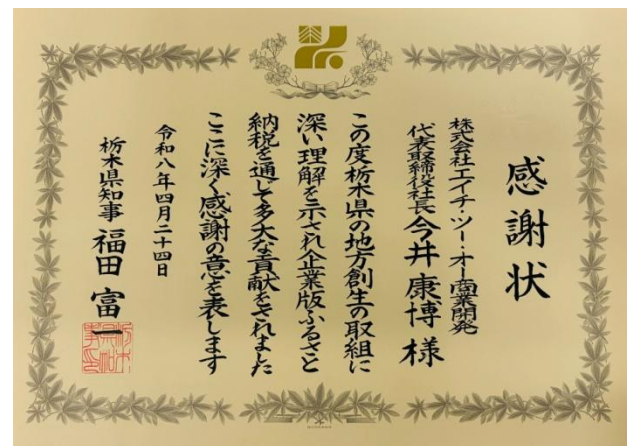 感謝状
株式会社エイチ・ツー・オー商業開発
代表取締役社長 今井康博 様
この度栃木県の地方創生の取組に
深い理解を示され企業版ふるさと
納税を通して多大な貢献をされました
ここに深く感謝の意を表します
令和八年四月二十四日
栃木県知事 福田富一